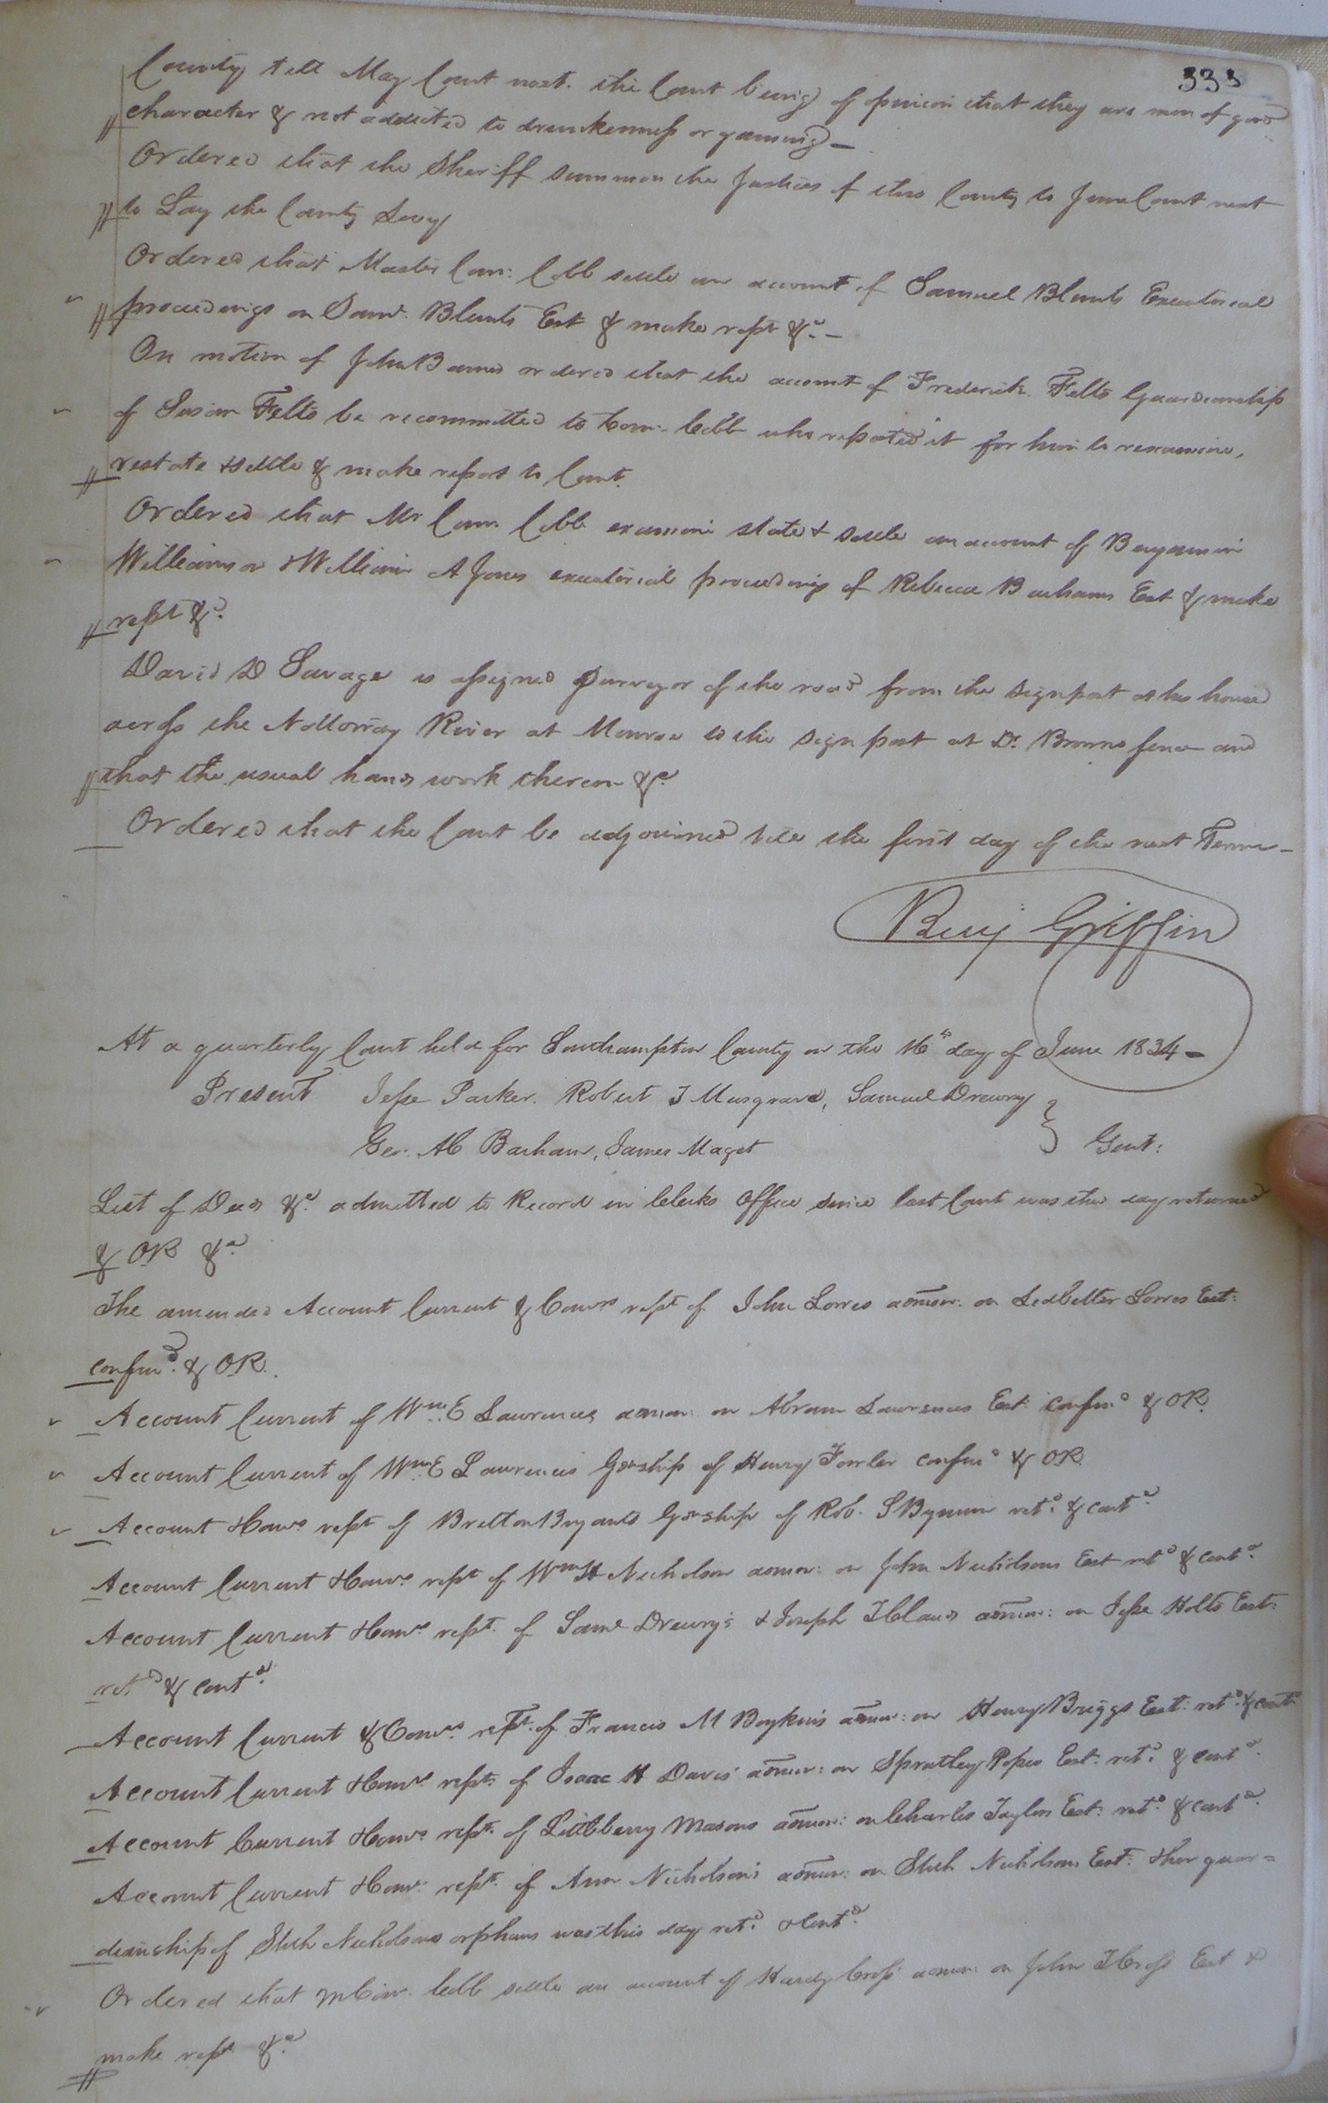 333
County till May Court next. the Court being of opinion that they are men of good
character & not addicted to drunkenness or gaming —
Ordered that the Sheriff summon the Justices of this County to June Court next
to Lay the County Levy
Ordered that Master Com: Cobb settle an account of Samuel Blunts Executorial
proceedings on Saml. Blunts Est & make rept &c. —
On motion of John Barnes ordered that the account of Frederick Felts Guardianship
of Susan Felts be recommitted to Com. Cobb who reported it for him to reexamine,
restate & settle & make report to Court.
Ordered that Mr Com Cobb examine state & settle an account of Benjamin
Williamson & William A Jones executorial proceedings of Rebecca Barhams Est & make
rept &c.
David D Savage is assigned Surveyor of the road from the signpost at his house
across the Nottoway River at Monroe to the sign post at Dr. Browns fence and
that the usual hands work thereon &c
Ordered that the Court be adjourned till the first day of the next Term —
Benj Griffin
At a quarterly Court held for Southampton County on the 16th day of June 1834 —
Present Jesse Parker. Robert T Musgrave, Samuel Drewry
Geo. H Barham, James Maget } Gent:
List of Deeds &c. admitted to Record in Clerks Office since last Court was this day returned
& OR &c
The amended Account Current & Comrs rept of John admor: on Ledbetter Est:
confmd. & OR.
Account Current of Wm. E Lawrences admor: on Abram Lawrences Est confmd & OR.
Account Current of Wm E Lawrences Gdrship of Henry Fowler confmd & OR.
Account & Comrs rept of Britton Bryants Gdrship of Rob. S Bynum retd. & contd.
Account Current & Comrs. rept of Wm H Nicholson admor: on John Nicholsons Est retd & contd.
Account Current & Comrs. rept. of Saml Drewry's & Joseph T Claud admor: on Jesse Holts Est:
retd & contd.
Account Current & Comrs rept. of Francis M Boykins admor: on Henry Briggs Est: retd. & contd
Account Current & Comrs. rept. of Isaac H Davis admor: on Spratley Popes Est. retd. & contd.
Account Current & Comrs. rept. of Littleberry Masons admor: on Charles Taylors Est: retd. & contd.
Account Current & Comrs. rept. of Ann Nicholson's admor: on Nicholsons Est: & her guar=
dianship of Nicholsons orphans was this day retd. & contd.
Ordered that M Com. Cobb settle an account of Hardy Cross admor: on John T Cross Est &
make rept &c.